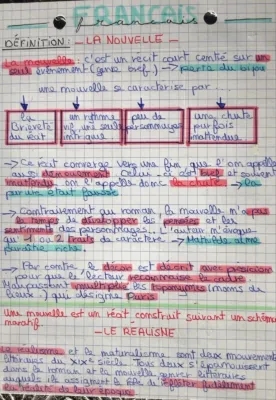 FRANÇAIS
français
DÉFINITION: - LA NOUVELLE -
La nouvelle, c'est un récit court centré sur un
seul évènement (genre bref.) → perte du bijou
une nouvelle se caractérise par
la brièveté du récit
un rythme vif, une seule intrigue.
peu de personnages
une chute parfois inattendue.
→ Ce récit converge vers une fin que l'on appelle
aussi dénouement. Celui-ci est bref et souvent
inattendu, on l'appelle donc la chute → la
parure était fausse
→ Contrairement au roman, la nouvelle n'a pas
le temps de développer les pensées et les
sentiments des personnages. L'auteur n'évoque
que 1 ou 2 traits de caractère → Mathilde aime
paraître riche.
→ Par contre, le décor est décrit avec précision
pour que le lecteur reconnaisse le cadre.
Maupassant multiplie les toponymes (noms de
lieux.) qui désigne Paris
une nouvelle est un récit construit suivant un schéma
narratif
- LE RÉALISME
Le réalisme et le naturalisme sont deux mouvements
littéraires du XIXe siècle. Tous deux s'épanouissent
dans le roman et la nouvelle, genres littéraires
auxquels ils assignent le rôle de refléter fidèlement
la réalité de leur époque